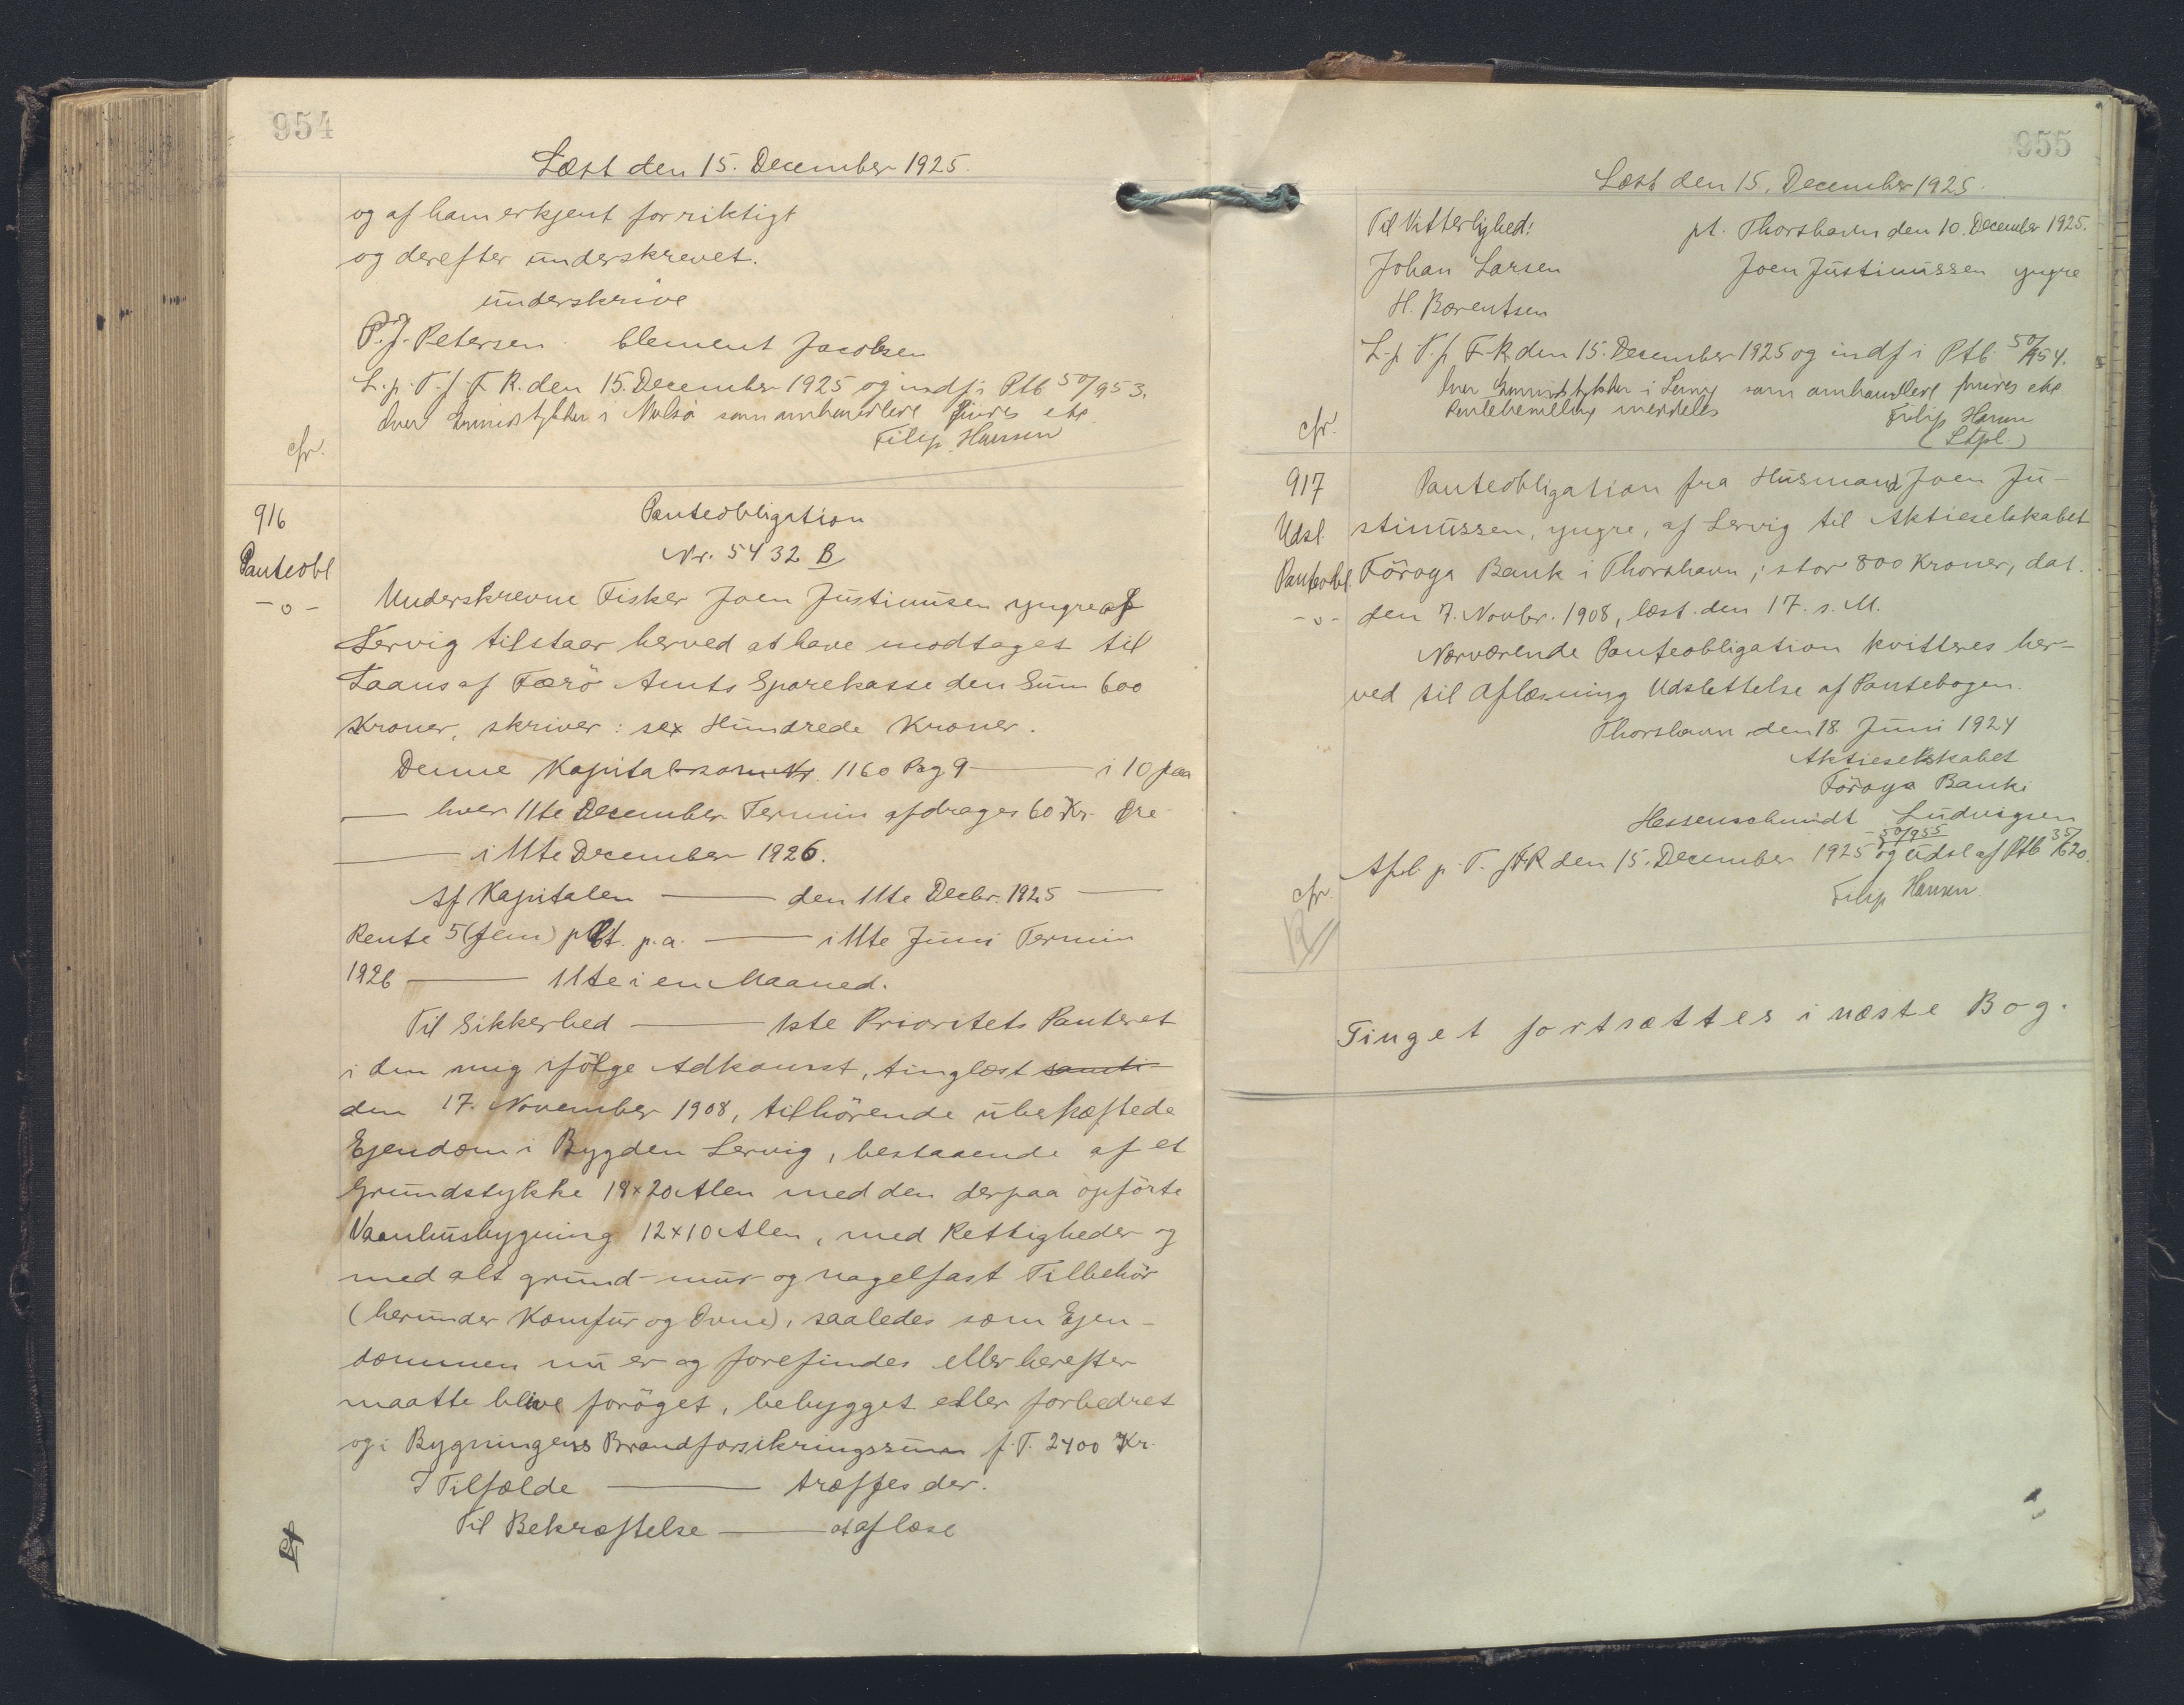 954
Læst den 15. December 1925.
og af ham erkjent for riktigt
og derefter underskrevet.
underskrive
P.J. Petersen Clement Jacobsen
L. p. T. f. F. R. den 15. December 1925 og indf i Ptb 50/953.
i Nolsö som omhandlere
Filip Hansen
cfr.
916
Panteobl
-o-
Panteobligation
Nr. 5432 B
Underskrevne Fisker Joen Justinusen yngre af
Lervig tilstaar herved at have modtaget til
Laans af Færö Amts Sparekasse den Sum 600
Kroner, skriver: sex Hundrede Kroner.
Denne Kapital som Nr. 1160 Pag 9 — i 10 paa
— hver 11te December Termin afdrages 60 Kr. Öre
— i 11te December 1926.
Af Kapitalen — den 11te Decbr. 1925 —
Rente 5 (fem) pCt. p.a. — i 11te Juni Termin
1926 — 11te i en Maaned.
Til Sikkerhed — 1ste Prioritets Panteret
i den mig ifölge Adkomst, tinglæst samti
den 17. November 1908, tilhörende ubehæftede
Ejendom i Bygden Lervig, bestaaende af et
Grundstykke 18×20 Alen med den derpaa opförte
Vaanhusbygning 12×10 Alen, med Rettigheder og
med alt grund- mur- og nagelfast Tilbehör
(herunder Komfur og Ovne), saaledes som Ejen-
dommen nu er og forefindes eller herefter
maatte blive foröget, bebygget eller forbedret
og i Bygningens Brandforsikringssum f. T. 2400 Kr.
I Tilfælde — træffes der.
Til Bekræftelse — at aflæse
955
Læst den 15. December 1925.
Til Vitterlighed! pt. Thorshavn den 10. December 1925.
Johan Larsen Joen Justinussen yngre
H. Barentsen
L. p. T. f. F. R. den 15. December 1925 og indf i Ptb. 50/954.
i Lervig som omhandlere
meddeles Filip Hansen
(Stpl.)
cfr.
917
Udsl.
Panteobl.
-o-
Panteobligation fra Husmand Joen Ju-
stinussen, yngre, af Lervig til Aktieselskabet
Föroya Bank i Thorshavn, stor 800 Kroner, dat.
den 7. Novbr. 1908, læst den 17. s. M.
Nærværende Panteobligation kvitteres her-
ved til Aflæsning Udslettelse af Pantebogen.
Thorshavn den 18. Juni 1924
Aktieselskabet
Föroya Banki
Hessenschmidt Ludvigsen
50/955
Afl. p. T. f. F. R den 15. December 1925 og Udsl af Ptb 35/620.
Filip Hansen
cfr.
Tinget fortsættes i næste Bog.